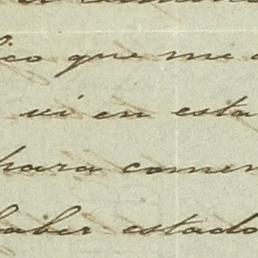 que me
vi en esta
para comen
haber estado